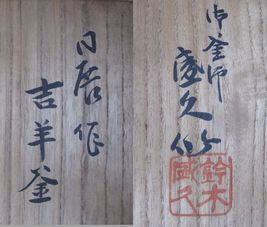 御釜師
盛久
鈴木
盛久
居作
吉羊釜